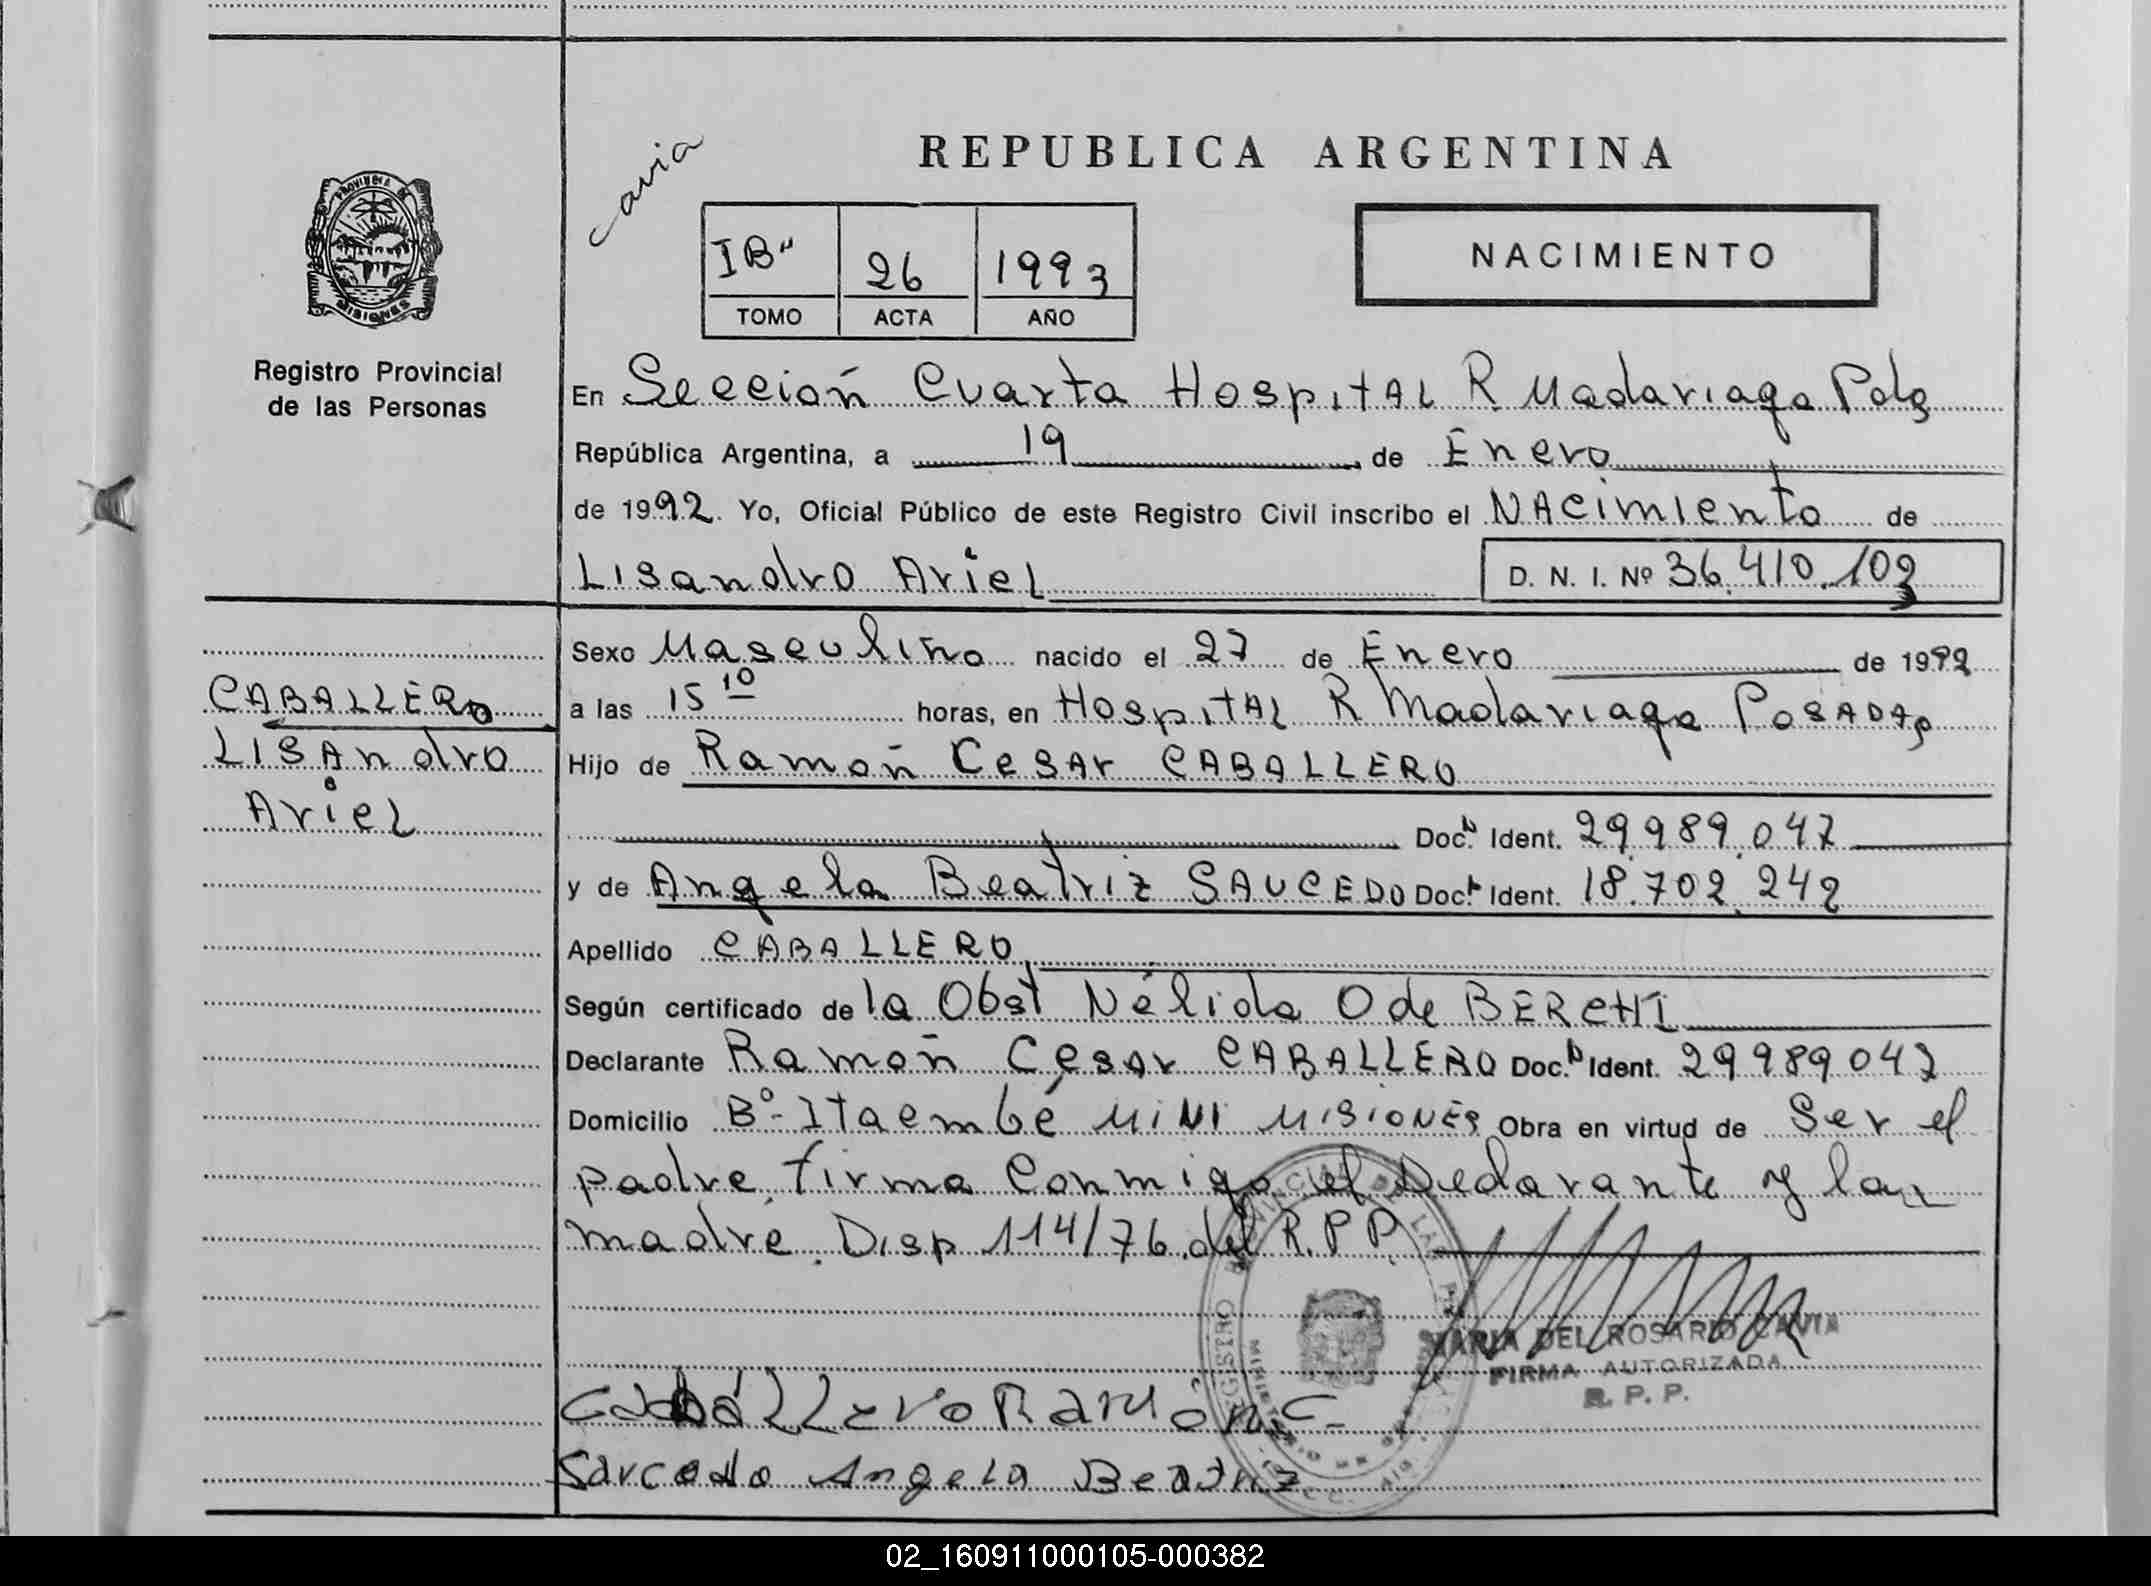 REPUBLICA ARGENTINA
Cavia
PROVINCIA DE
MISIONES
IB" 26 1993
TOMO ACTA AÑO
NACIMIENTO
Registro Provincial
de las Personas
En Sección Cuarta Hospital R. Madariaga Pdas
República Argentina, a 19 de Enero
de 1992. Yo, Oficial Público de este Registro Civil inscribo el NAcimiento de
Lisandro Ariel D. N. I. Nº 36.410.103
Sexo Masculino nacido el 27 de Enero de 1992
CABALLERO
LISAndro
Ariel
a las 15 10 horas, en HospitAL R Madariaga POSADAS
Hijo de Ramón CeSAr CABALLERO
Doc. Ident. 29.989.047
y de Angela Beatriz SAUCEDO Doc. Ident. 18.702.242
Apellido CABALLERO
Según certificado de la Obst Nélida O de BERCHI
Declarante Ramón CeSAr CABALLERO Doc. Ident. 29989047
Domicilio Bº- Itaembé MiNI MISIONES Obra en virtud de Ser el
padre, firma Conmigo el Declarante y la
madre. Disp 114/76 del R.P.P.
MARIA DEL ROSARIO CAVIA
FIRMA AUTORIZADA
R. P. P.
Caballero Ramón C.
Saucedo Angela Beatriz
02_160911000105-000382